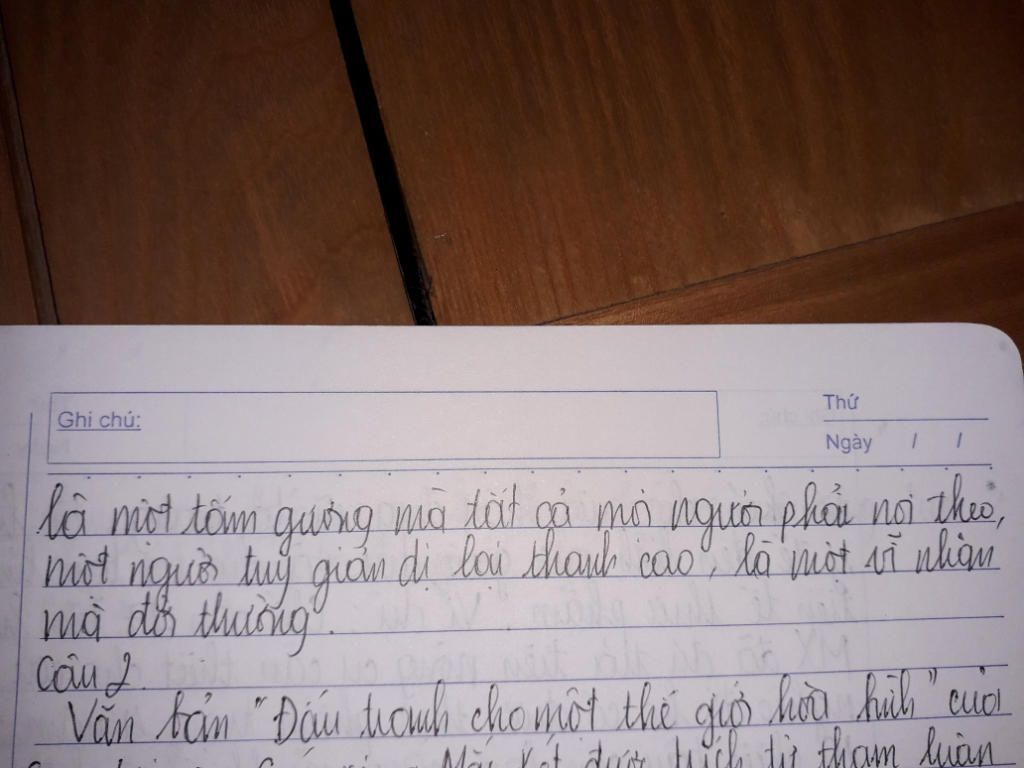 Ghi chú:
Thứ
Ngày / /
là một tấm gương mà tất cả mọi người phải noi theo,
một người tuy giản dị lại thanh cao, là một vĩ nhân
mà đời thường.
Câu 2.
Văn bản "Đấu tranh cho một thế giới hòa bình" của
Mác Két được trích từ tham luận